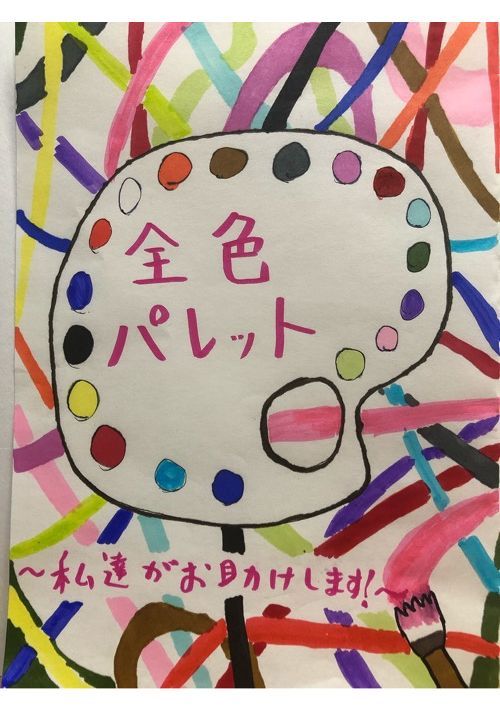 全色
パレット
～私達がお助けします!～